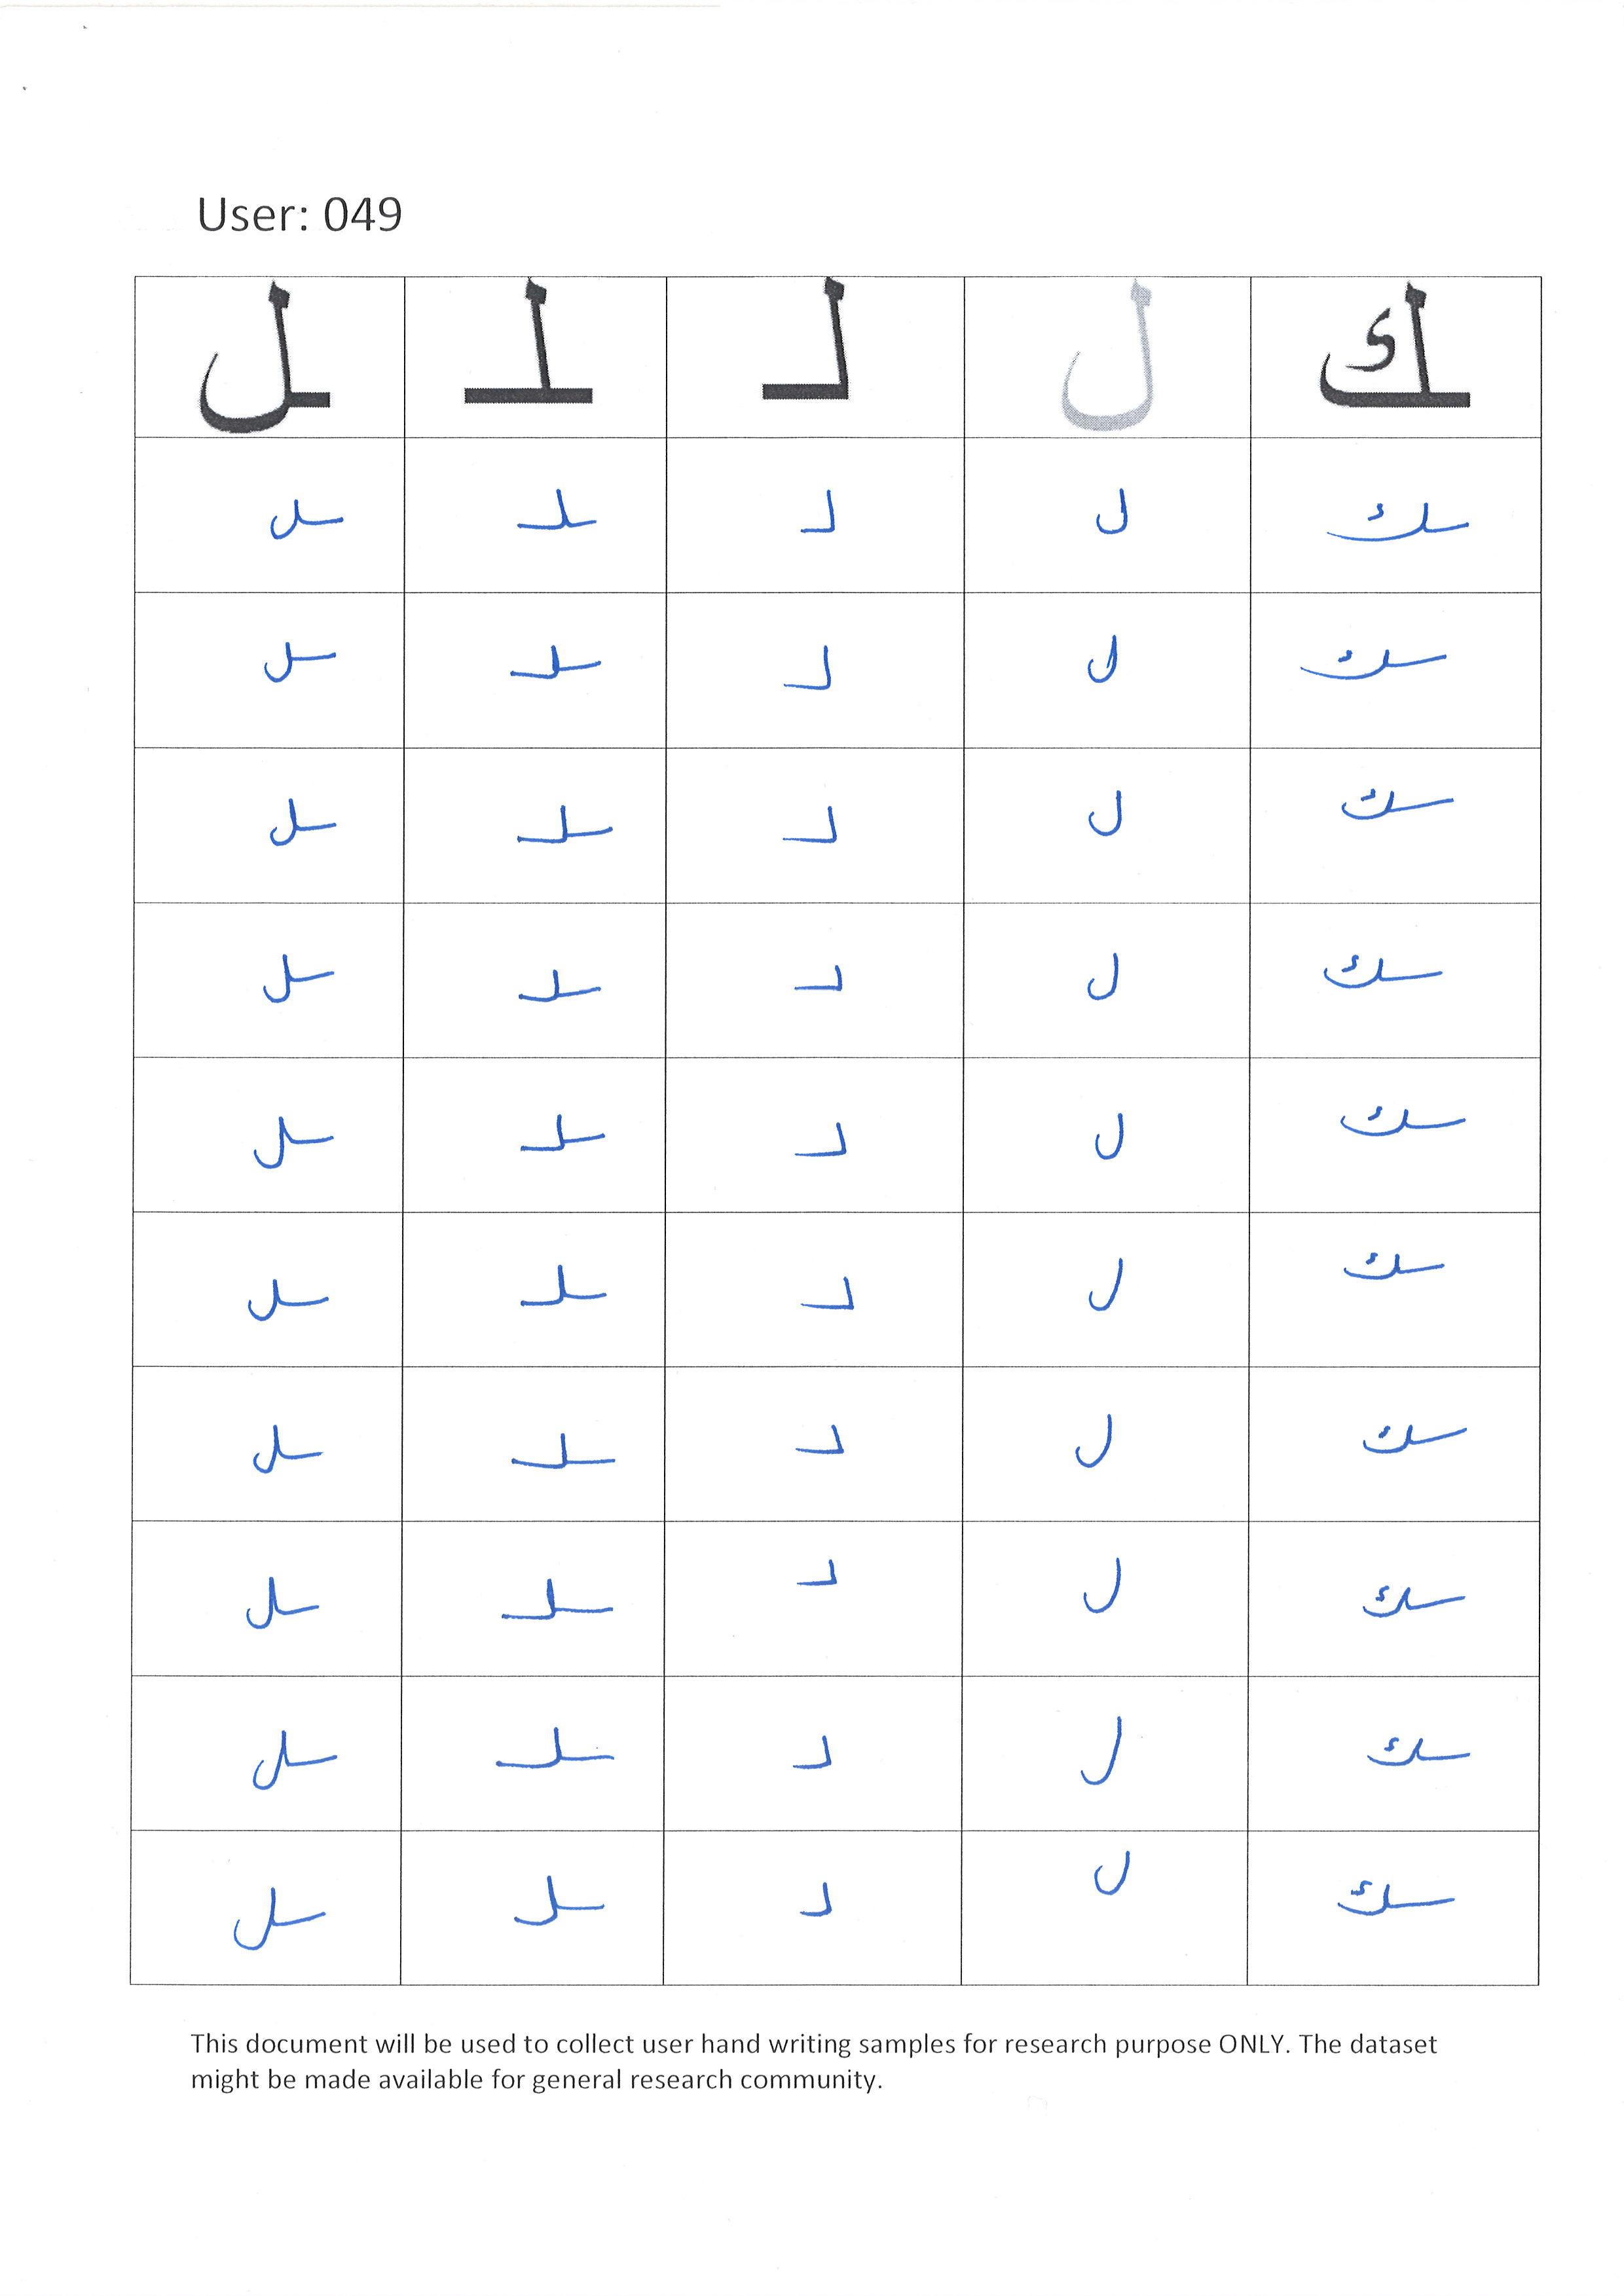 User: 049
ـل ـلـ لـ ل ـك
ـل ـلـ لـ ل ـك
ـل ـلـ لـ ل ـك
ـل ـلـ لـ ل ـك
ـل ـلـ لـ ل ـك
ـل ـلـ لـ ل ـك
ـل ـلـ لـ ل ـك
ـل ـلـ لـ ل ـك
ـل ـلـ لـ ل ـك
ـل ـلـ لـ ل ـك
ـل ـلـ لـ ل ـك
This document will be used to collect user hand writing samples for research purpose ONLY. The dataset
might be made available for general research community.